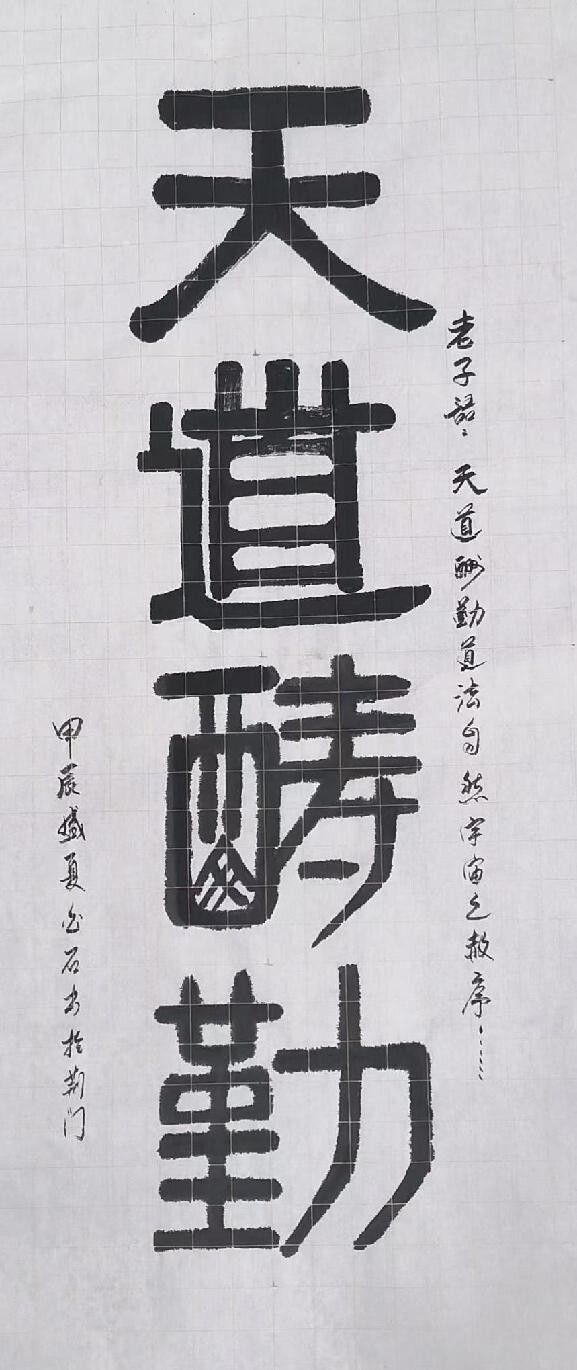 天道酬勤
老子語：天道酬勤道法自然宇宙之序……
甲辰盛夏石书於荆门